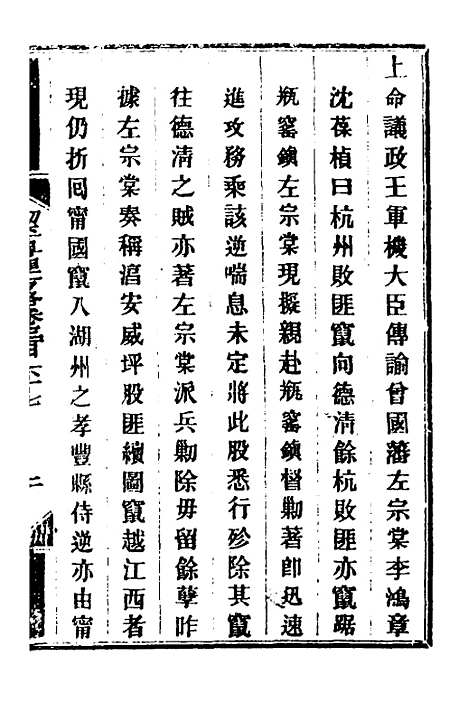 上命議政王軍機大臣傳諭曾國藩左宗棠李鴻章
沈葆楨曰杭州敗匪竄向德清餘杭敗匪亦竄踞
瓶窰鎮左宗棠現擬親赴瓶窰鎮督勦著卽迅速
進攻務乘該逆喘息未定將此股悉行殄除其竄
往德清之賊亦著左宗棠派兵勦除毋留餘孽昨
據左宗棠奏稱淳安威坪股匪續圖竄越江西者
現仍折回甯國竄入湖州之孝豐縣侍逆亦由甯
二